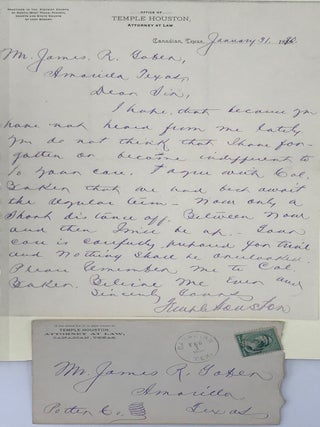 PRACTICES IN THE DISTRICT COURTS
OFFICE OF
TEMPLE HOUSTON,
ATTORNEY AT LAW
Canadian, Texas, January 31.
Mr. James R. Gober,
Amarillo, Texas,
Dear Sir,
I hope, that because you
have not heard from me lately
you do not think that I have for-
gotten or become indifferent to
your case. I agree with Col.
Baker that we had best await
the regular term - now only a
short distance off. Between now
and then I will be up - Your
case is carefully prepared for trial
and nothing shall be overlooked.
Please remember me to Col.
Baker. Believe me Ever and
Sincerely Yours
Temple Houston
TEMPLE HOUSTON,
ATTORNEY AT LAW,
CANADIAN, TEXAS.
FEB
TEX
Mr. James R. Gober
Amarillo
Potter Co. Texas